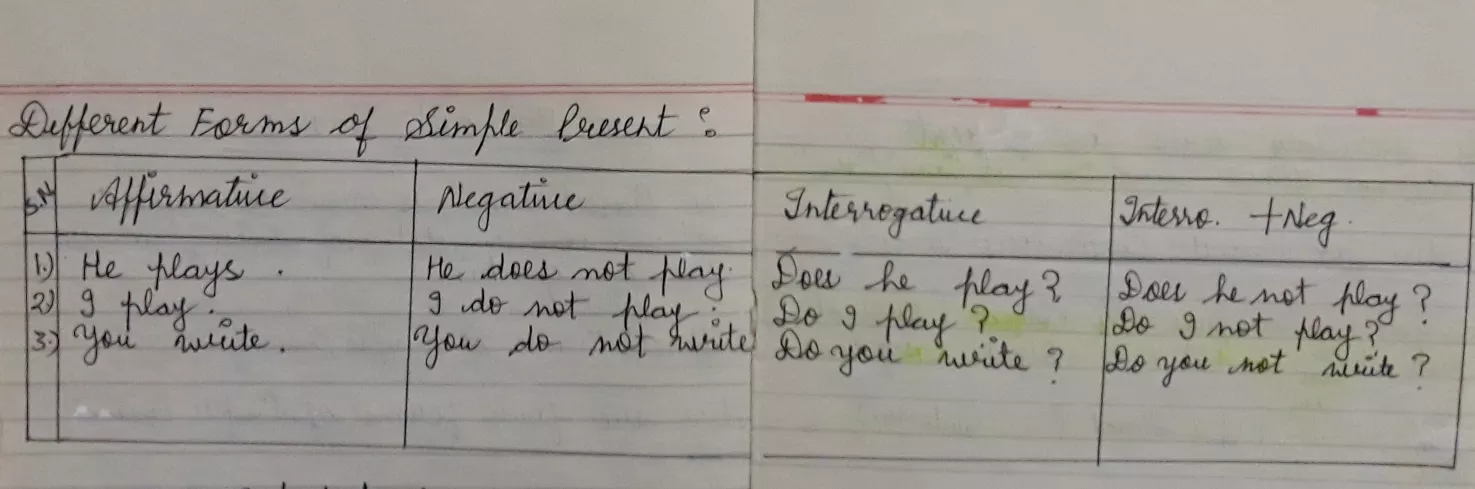 Different Forms of Simple Present :
S.N Affirmative Negative Interrogative Interro. + Neg.
1.) He plays. He does not play. Does he play? Does he not play?
2) I play. I do not play. Do I play? Do I not play?
3.) You write. You do not write Do you write? Do you not write?